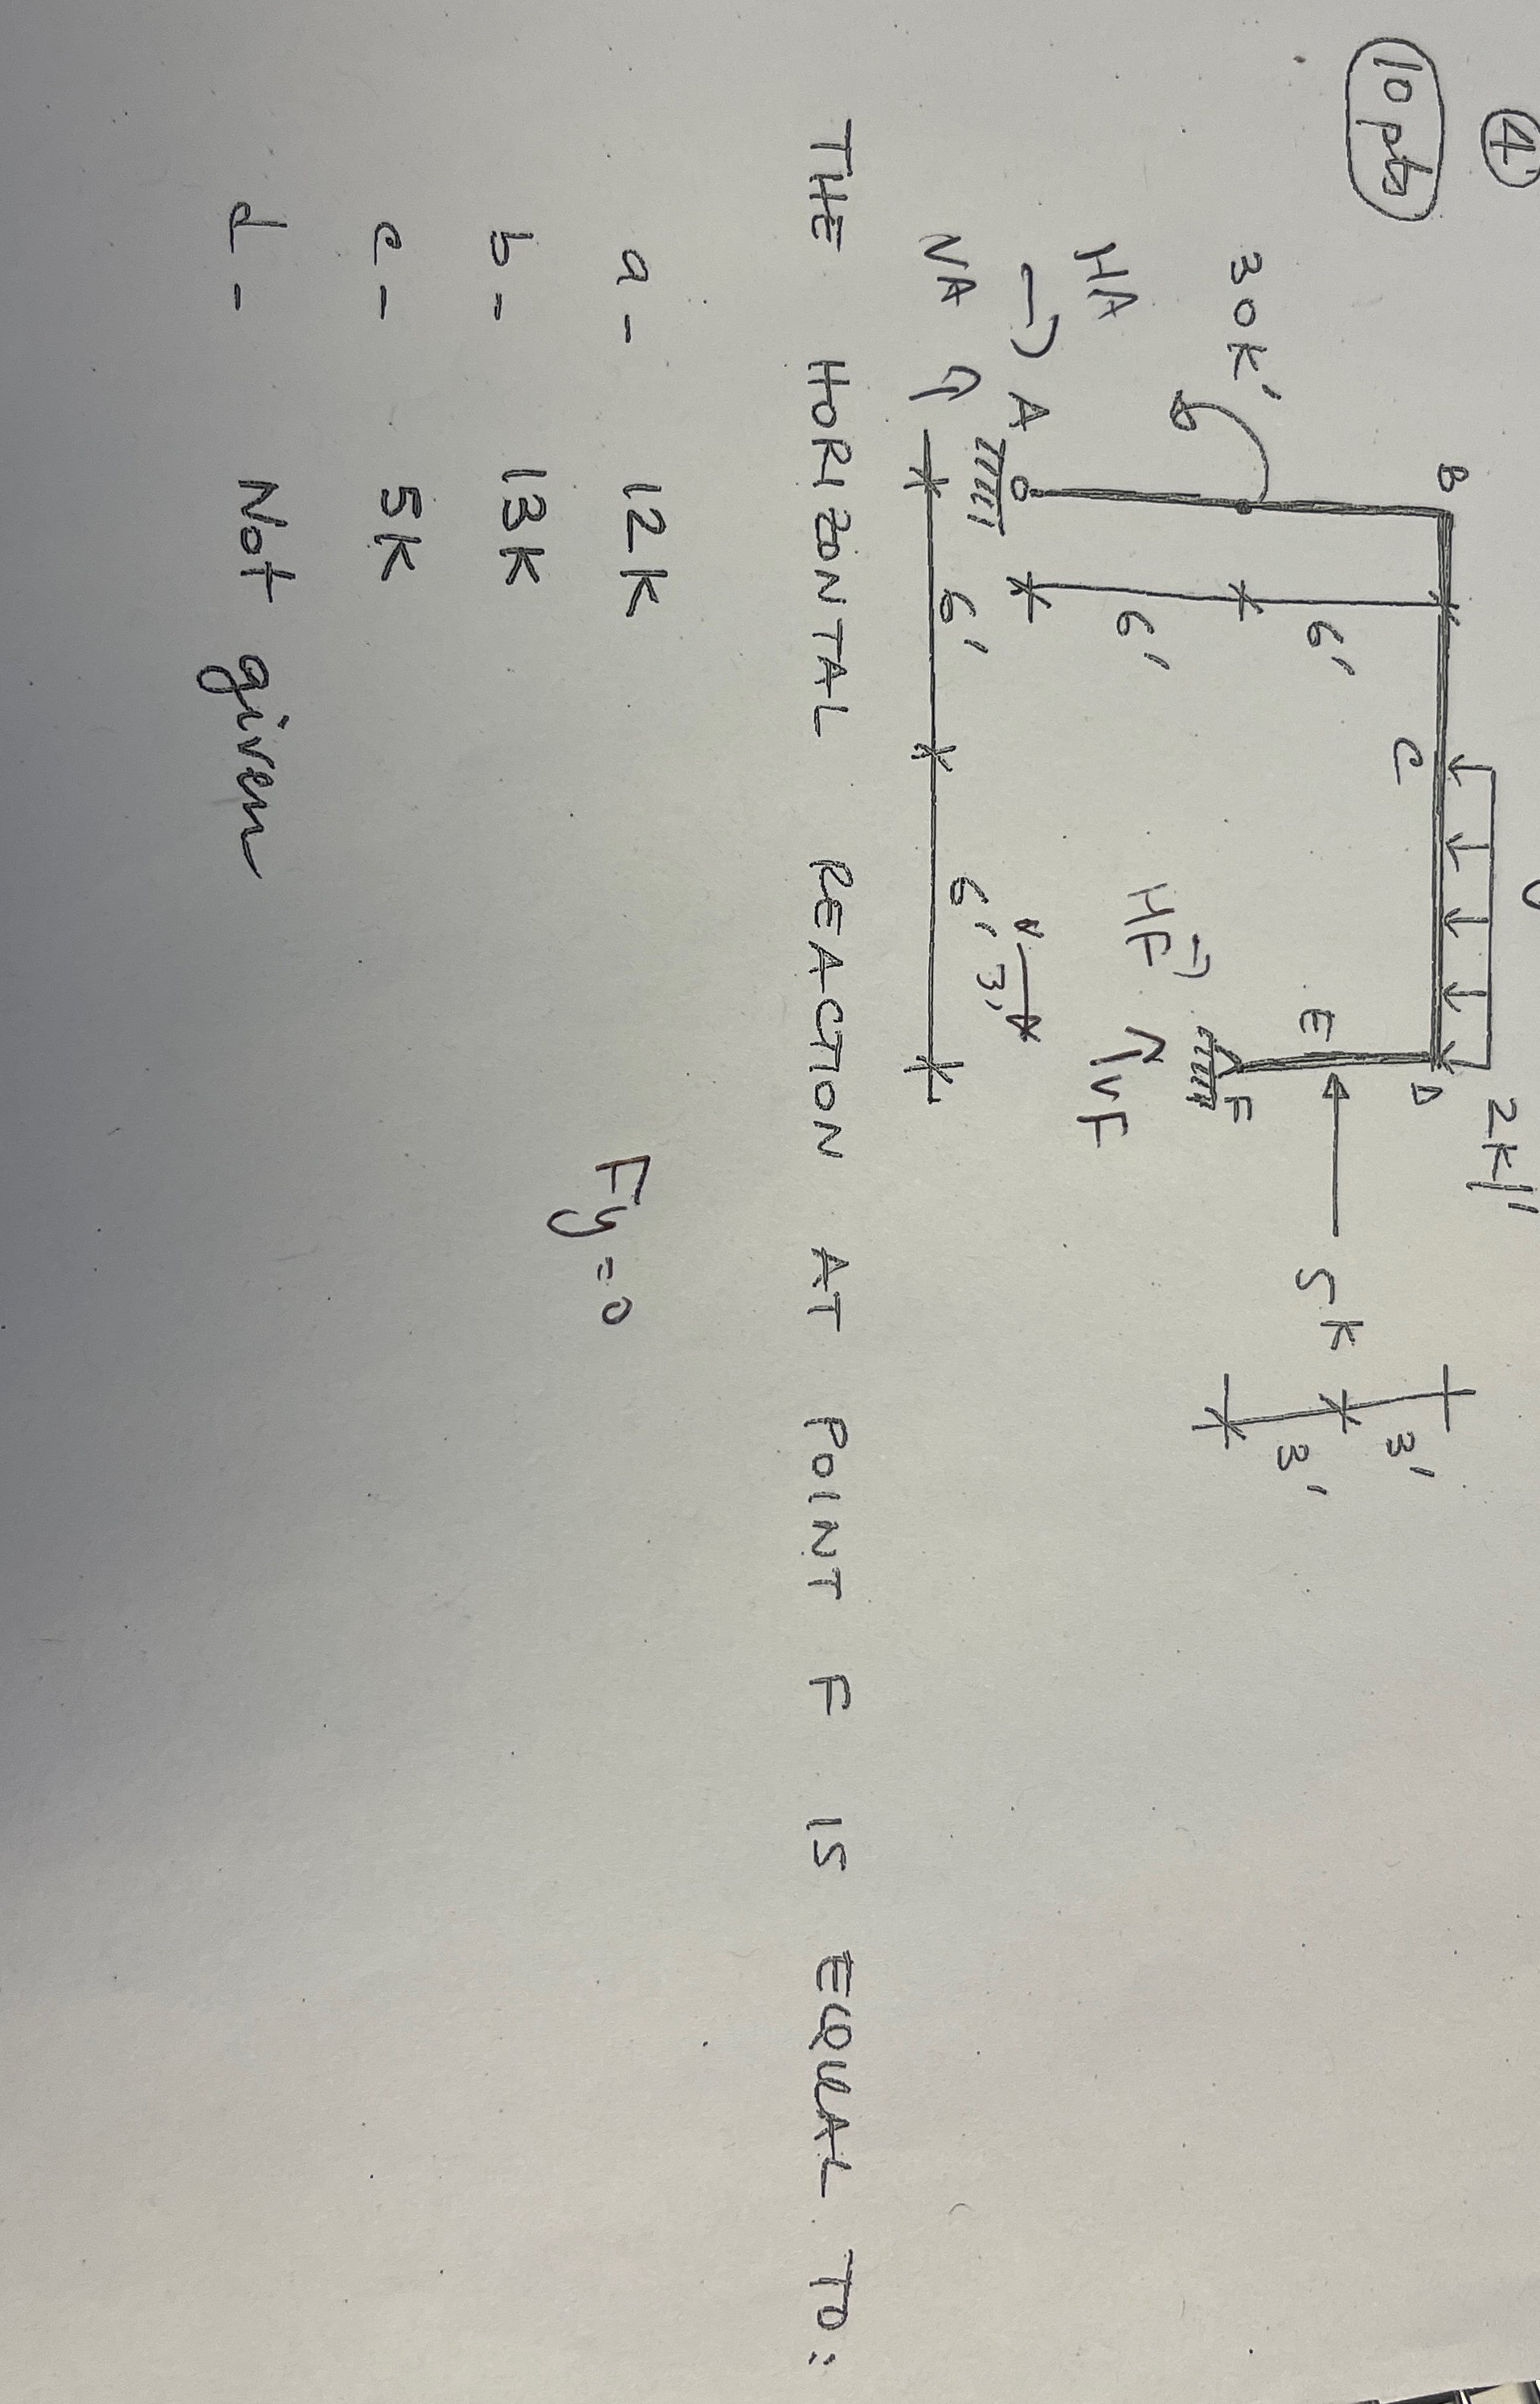 ④
10 pts
2k/'
B
C
D
6'
3'
30k'
E
5k
6'
3'
HA
HF
F
A
VF
3'
VA
6'
6'
THE HORIZONTAL REACTION AT POINT F IS EQUAL TO:
a - 12K
Fy = 0
b - 13K
c - 5K
d - Not given